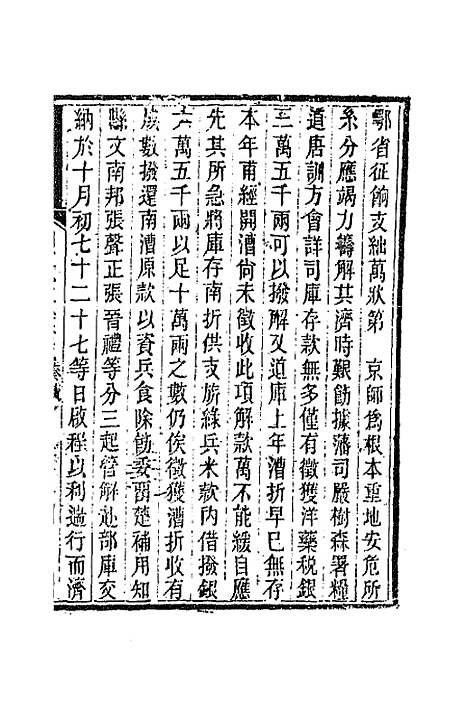 鄂省征餉支絀萬狀第　京師爲根本重地安危所
系分應竭力籌解共濟時艱飭據藩司嚴樹森署糧
道唐訓方會詳司庫存款無多僅有徵獲洋藥稅銀
三萬五千兩可以撥解又道庫上年漕折早巳無存
本年甫經開漕尙未徵收此項解款萬不能緩自應
先其所急將庫存南折供支旂綠兵米款內借撥銀
六萬五千兩以足十萬兩之數仍俟徵獲漕折收有
成數撥還南漕原款以資兵食除飭委留楚補用知
縣文南邦張聲正張晉禮等分三起管解赴部庫交
納於十月初七十二十七等日啟程以利遄行而濟